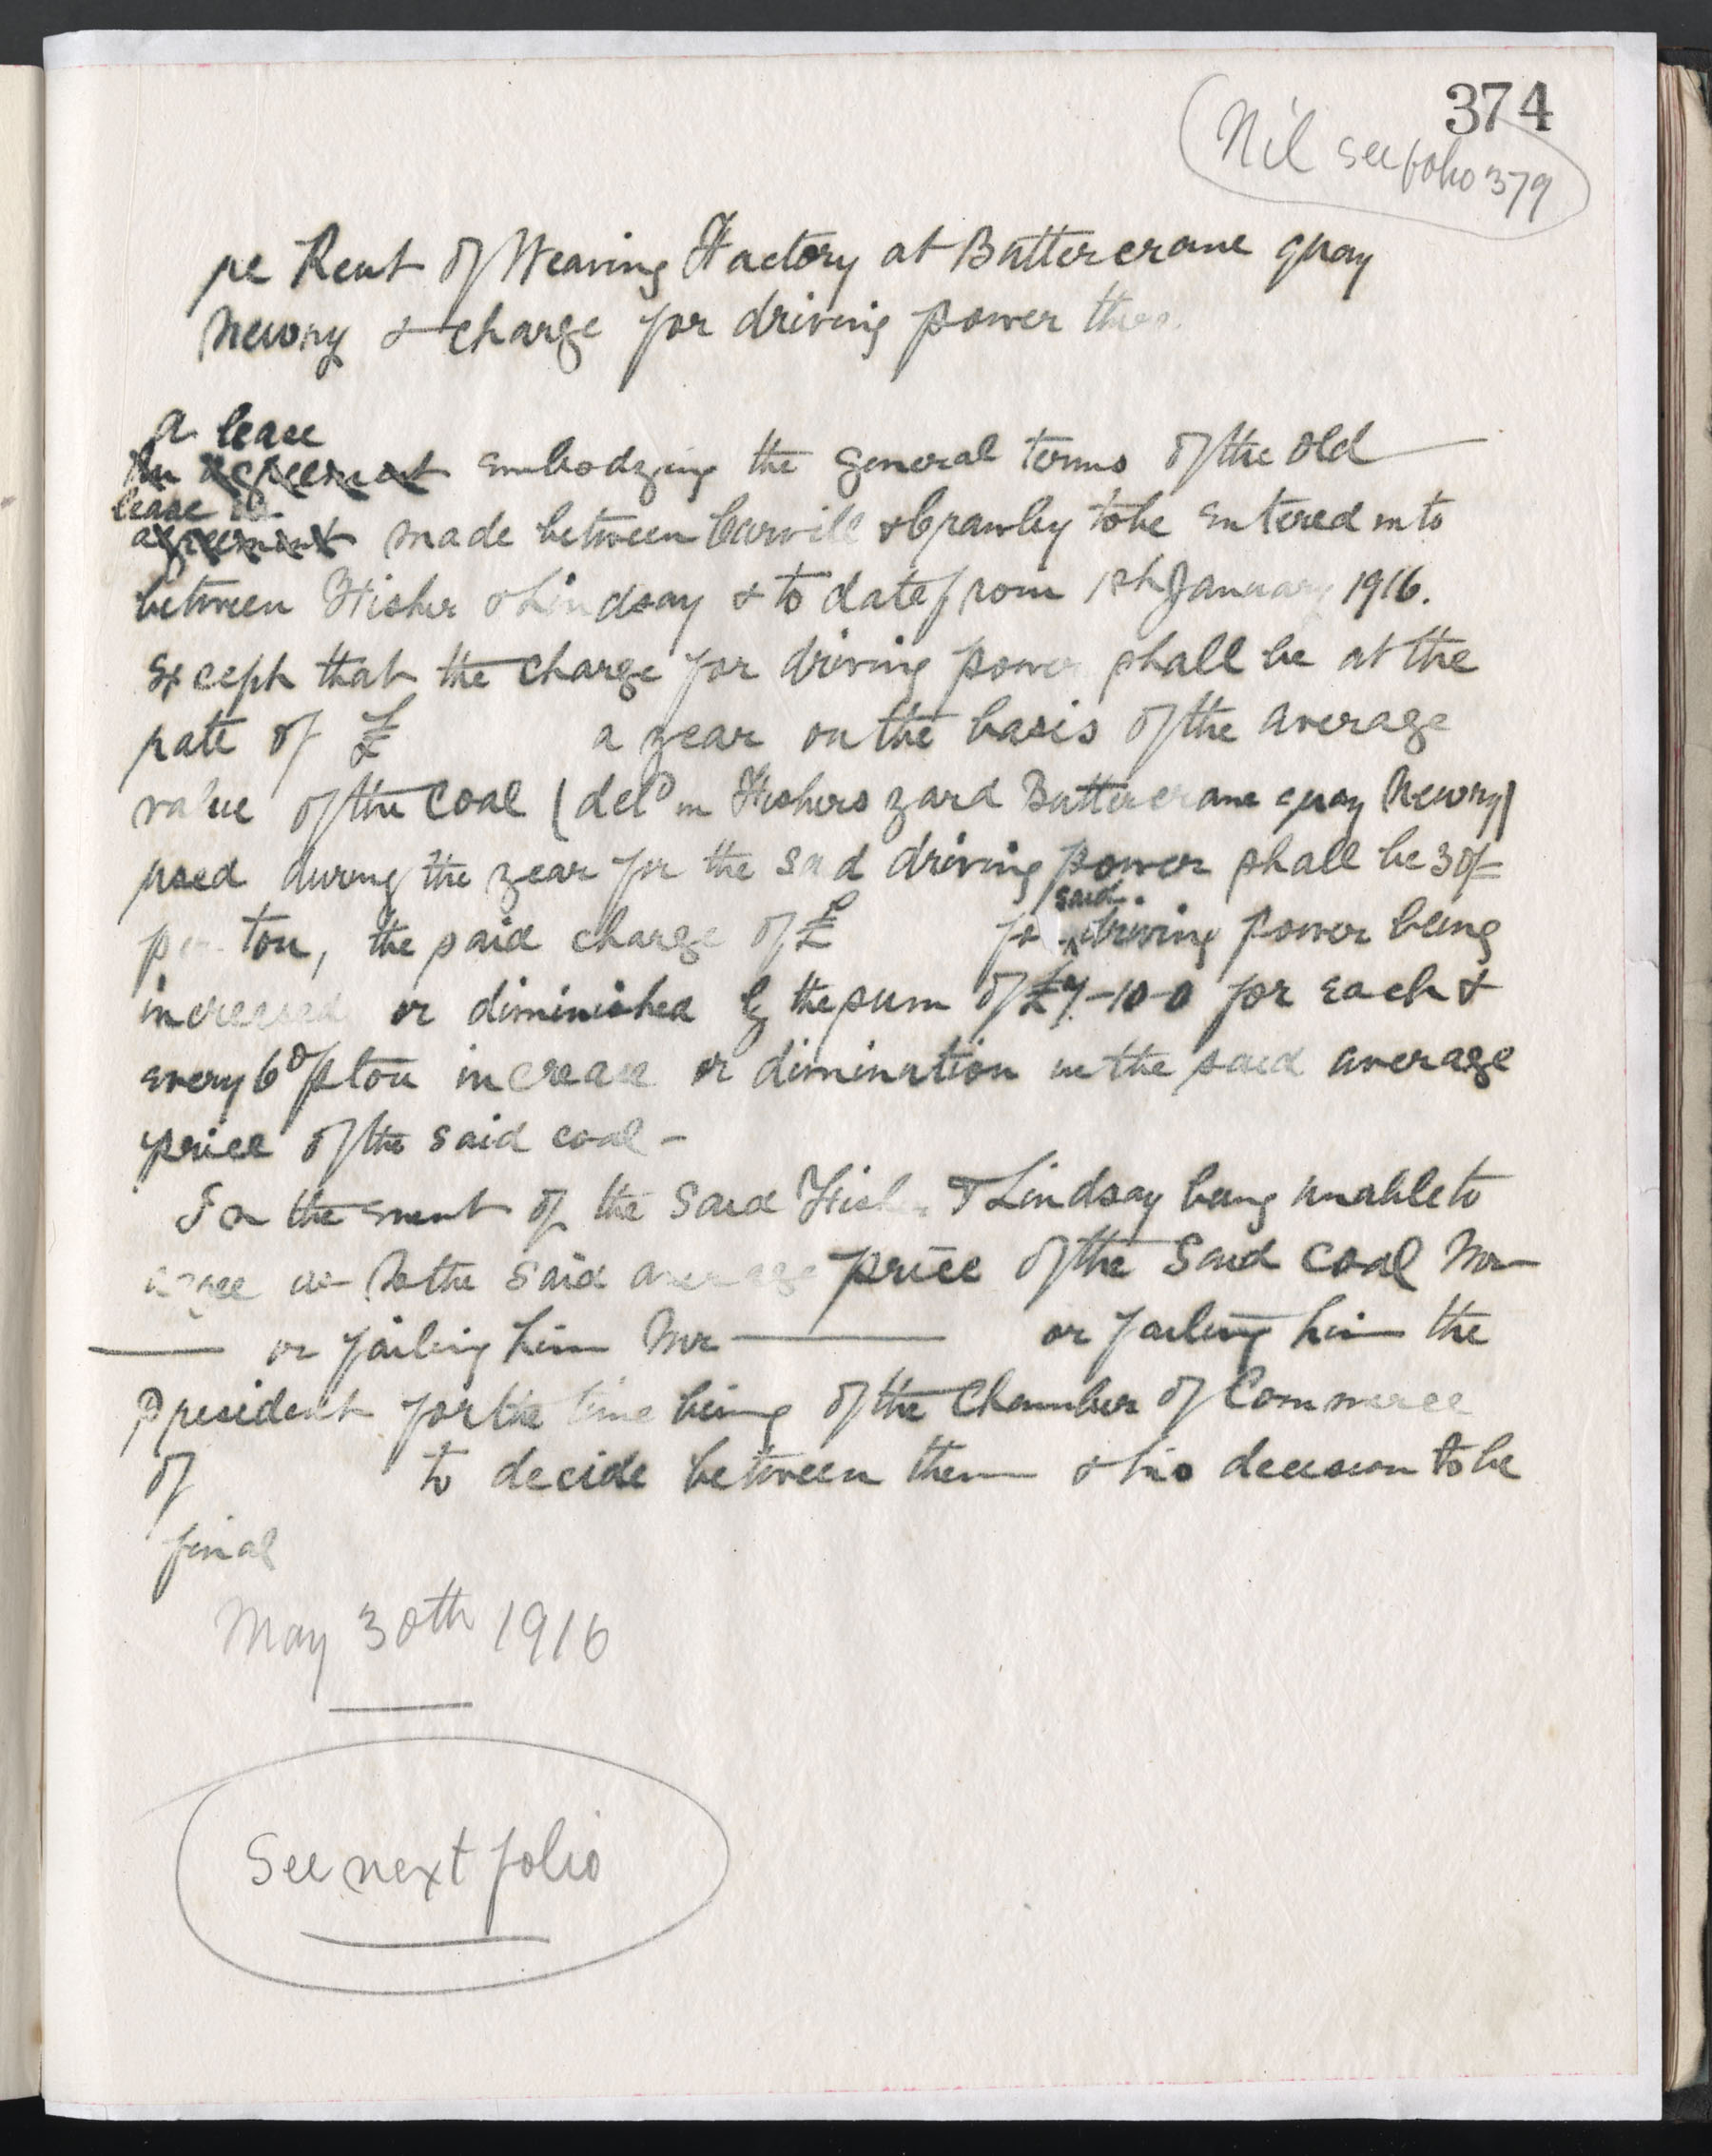 374
Nil see folio 379
re Rent of Weaving Factory at Buttercrane quay
Newry & charge for driving power
a lease
An agreement embodying the general terms of the old
lease
agreement made between Carvill & Crawley to be entered into
between Fisher & Lindsay & to date from 1st January 1916.
Except that the charge for driving power shall be at the
rate of £ a year on the basis of the average
value of the coal (deld in Fishers yard Buttercrane quay Newry)
used during the year for the said driving power shall be 30/=
per ton, the said charge of £ for
said
driving power being
increased or diminished by the sum of £7-10-0 for each &
every 6d p ton increase or diminution in the said average
price of the said coal -
In the event of the said Fisher & Lindsay being unable to
agree as to the said average price of the said coal Mr
— or failing him Mr — or failing him the
President for the time being of the Chamber of Commerce
of to decide between them & his decision to be
final
May 30th 1916
See next folio